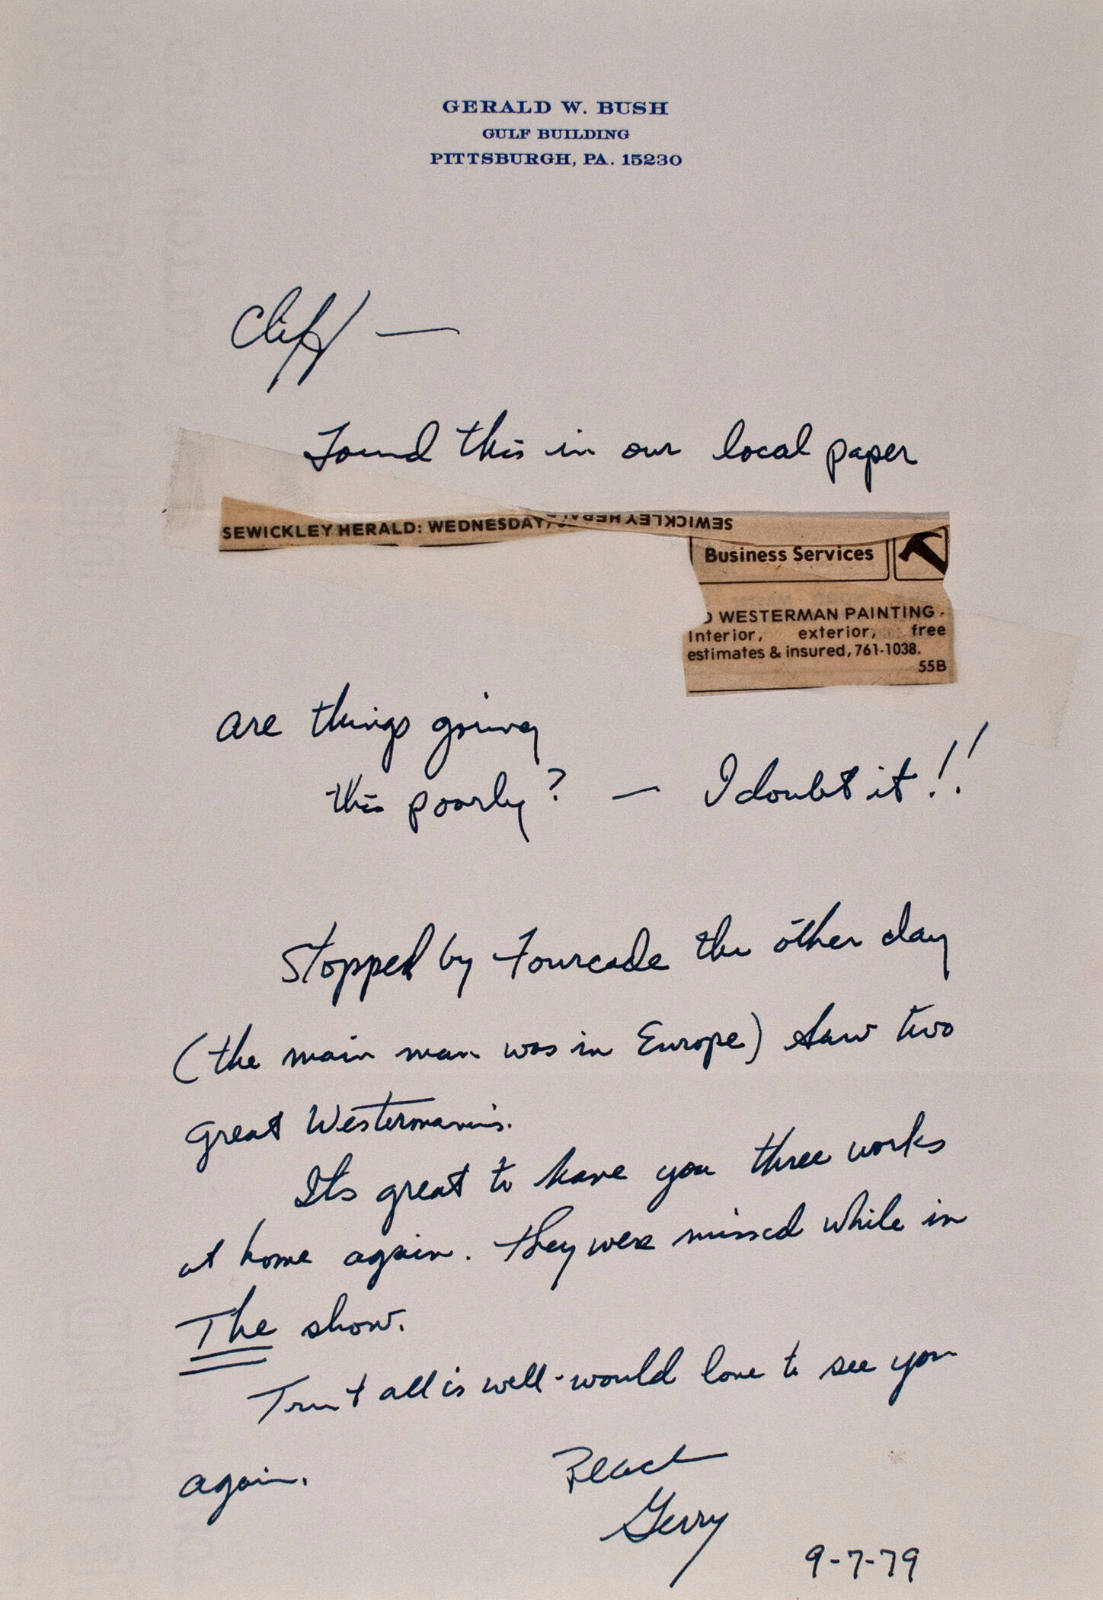 GERALD W. BUSH
GULF BUILDING
PITTSBURGH, PA. 15230
Cliff —
Found this in our local paper
SEWICKLEY HERALD: WEDNESDAY,
SEWICKLEY HERALD
Business Services
WESTERMAN PAINTING.
Interior, exterior, free
estimates & insured, 761-1038.
55B
are things going
this poorly? — I doubt it!!
Stopped by Fourcade the other day
(the main man was in Europe) saw two
great Westermanns.
Its great to have you three works
at home again. They were missed while in
The show.
Trust all is well - would love to see you
again.
Gerry
9-7-79